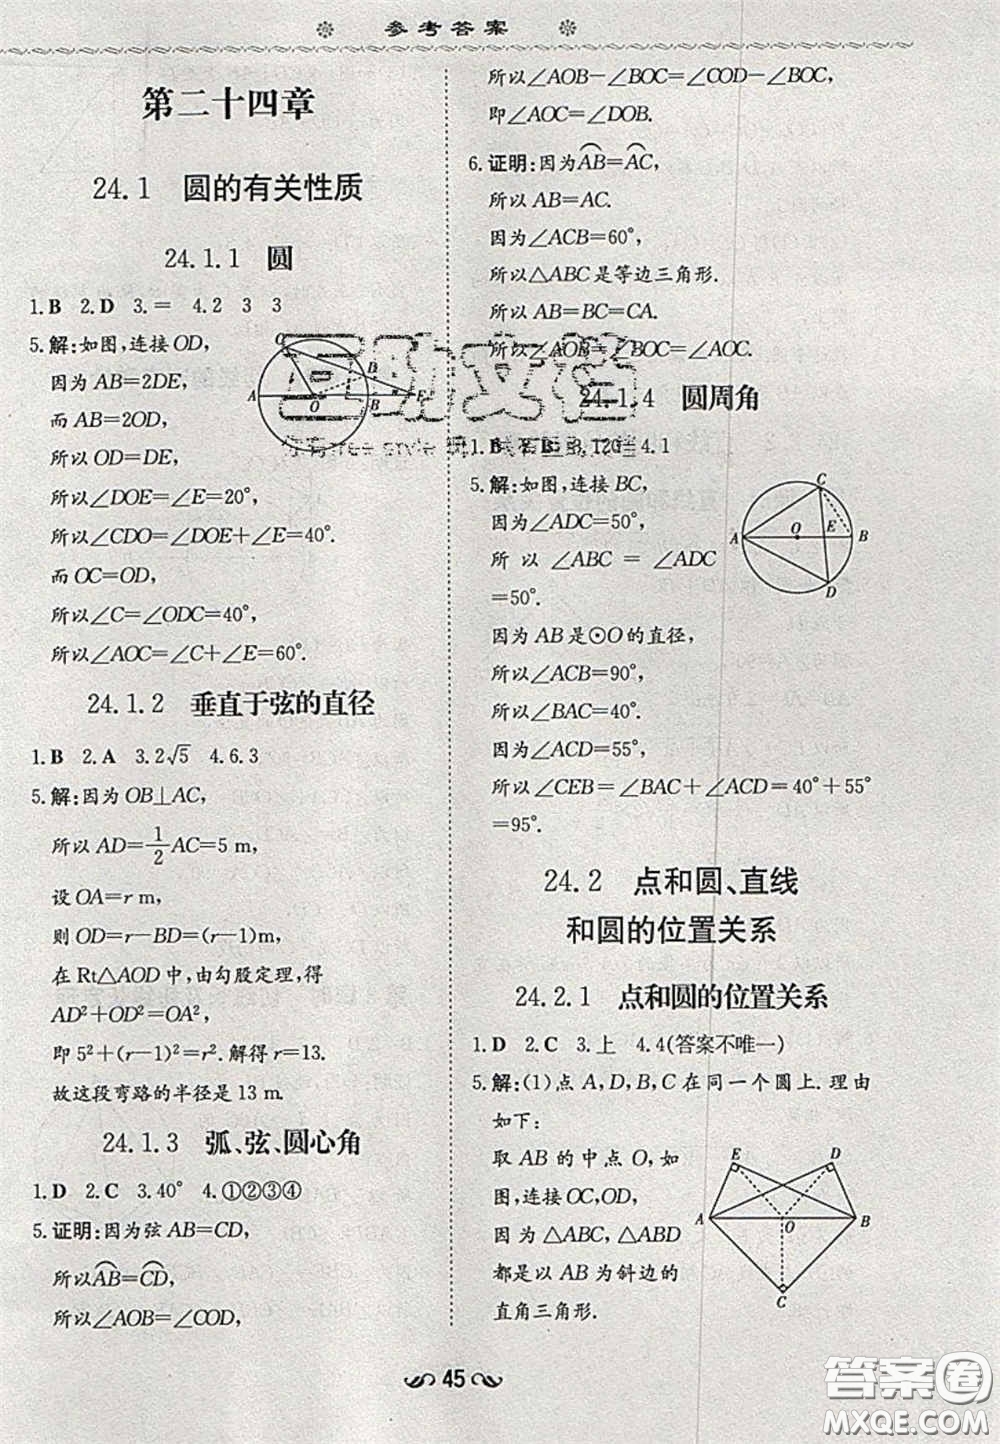 参考答案
第二十四章
24.1 圆的有关性质
24.1.1 圆
1.B 2.D 3.= 4.2 3 3
5.解:如图,连接OD,
因为AB=2DE,
而AB=2OD,
所以OD=DE,
所以∠DOE=∠E=20°,
所以∠CDO=∠DOE+∠E=40°.
而OC=OD,
所以∠C=∠ODC=40°,
所以∠AOC=∠C+∠E=60°.
C
D
A
O
B
E
24.1.2 垂直于弦的直径
1.B 2.A 3.2√5 4.6.3
5.解:因为OB⊥AC,
所以AD=1/2AC=5 m,
设OA=r m,
则OD=r-BD=(r-1)m,
在Rt△AOD中,由勾股定理,得
AD²+OD²=OA²,
即5²+(r-1)²=r².解得r=13.
故这段弯路的半径是13 m.
24.1.3 弧、弦、圆心角
1.D 2.C 3.40° 4.①②③④
5.证明:因为弦AB=CD,
所以⌒AB=⌒CD,
所以∠AOB=∠COD,
所以∠AOB-∠BOC=∠COD-∠BOC,
即∠AOC=∠DOB.
6.证明:因为⌒AB=⌒AC,
所以AB=AC.
因为∠ACB=60°,
所以△ABC是等边三角形.
所以AB=BC=CA.
所以∠AOB=∠BOC=∠AOC.
互助文档
24.1.4 圆周角
1.B 2.B 3.120° 4.1
5.解:如图,连接BC,
因为∠ADC=50°,
所以∠ABC=∠ADC
=50°.
因为AB是⊙O的直径,
所以∠ACB=90°,
所以∠BAC=40°.
因为∠ACD=55°,
所以∠CEB=∠BAC+∠ACD=40°+55°
=95°.
C
A
O
E
B
D
24.2 点和圆、直线
和圆的位置关系
24.2.1 点和圆的位置关系
1.D 2.C 3.上 4.4(答案不唯一)
5.解:(1)点A,D,B,C在同一个圆上.理由
如下:
取AB的中点O,如
图,连接OC,OD,
因为△ABC,△ABD
都是以AB为斜边的
直角三角形.
E
D
A
O
B
C
45
答案圈
MXQE.COM